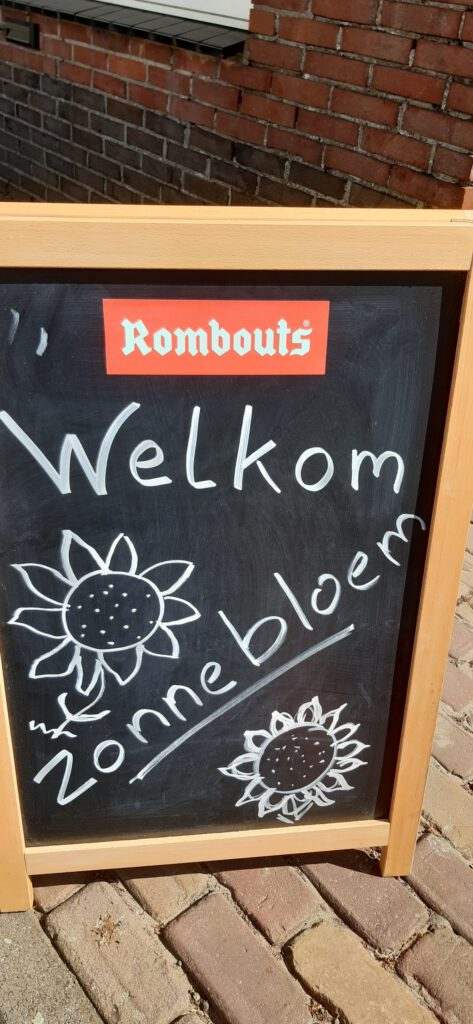 Rombouts®
Welkom
zonnebloem